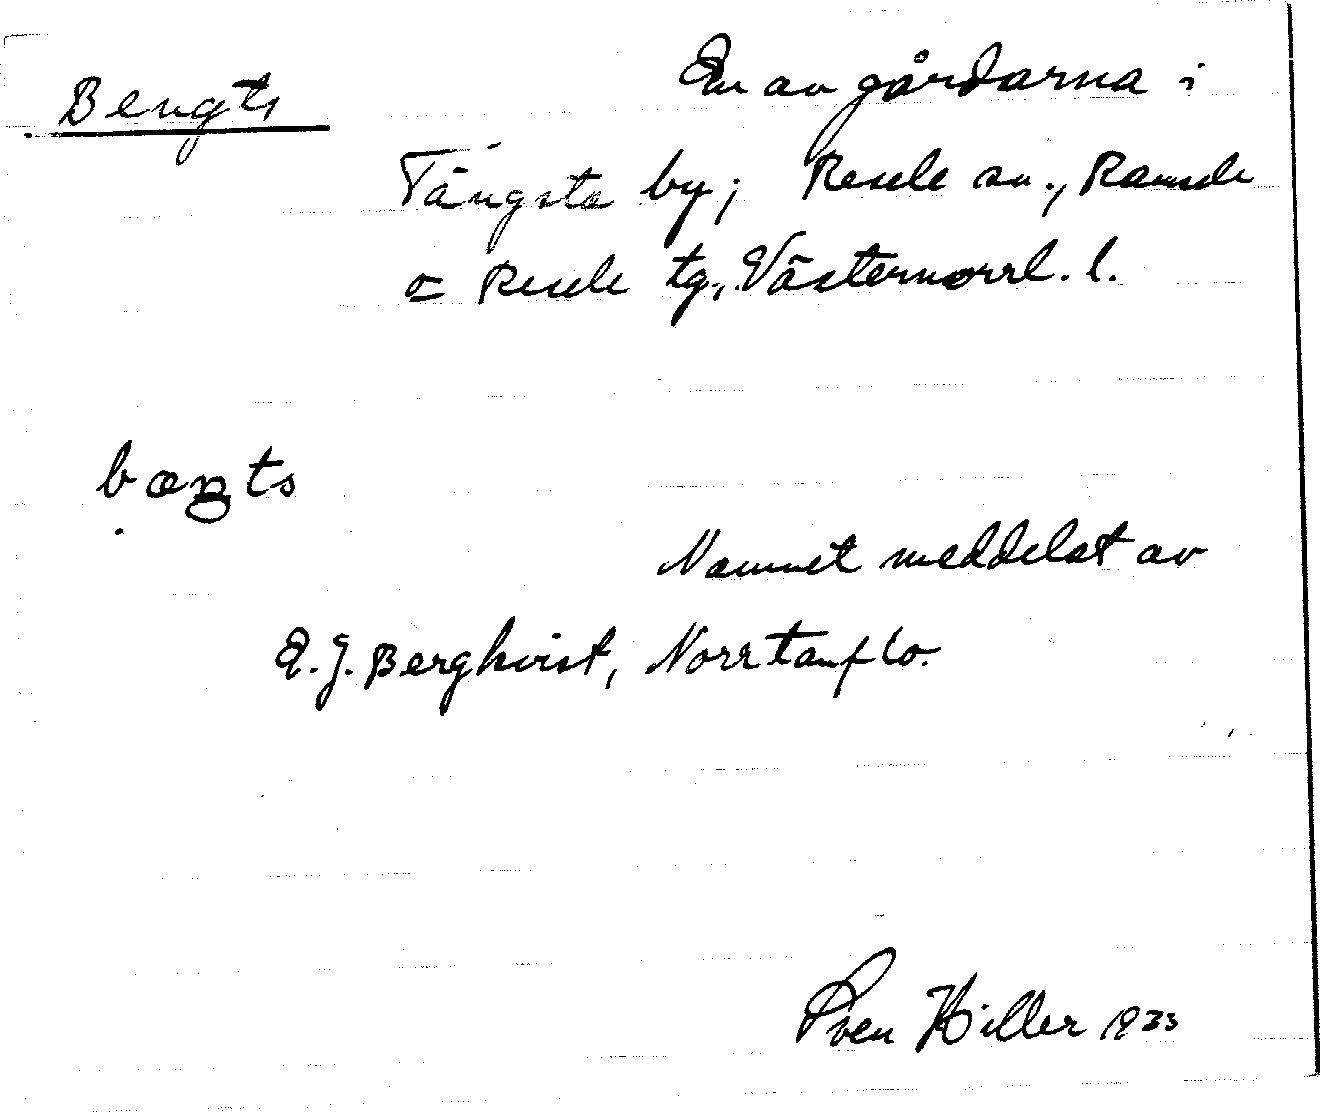 Bengts
En av gårdarna i
Tängsta by; Resele sn., Ramsele
o Resele tg., Västernorrl. l.
bæŋts
Namnet meddelat av
E. J. Bergkvist, Norrtanflo.
Sven Hiller 1933